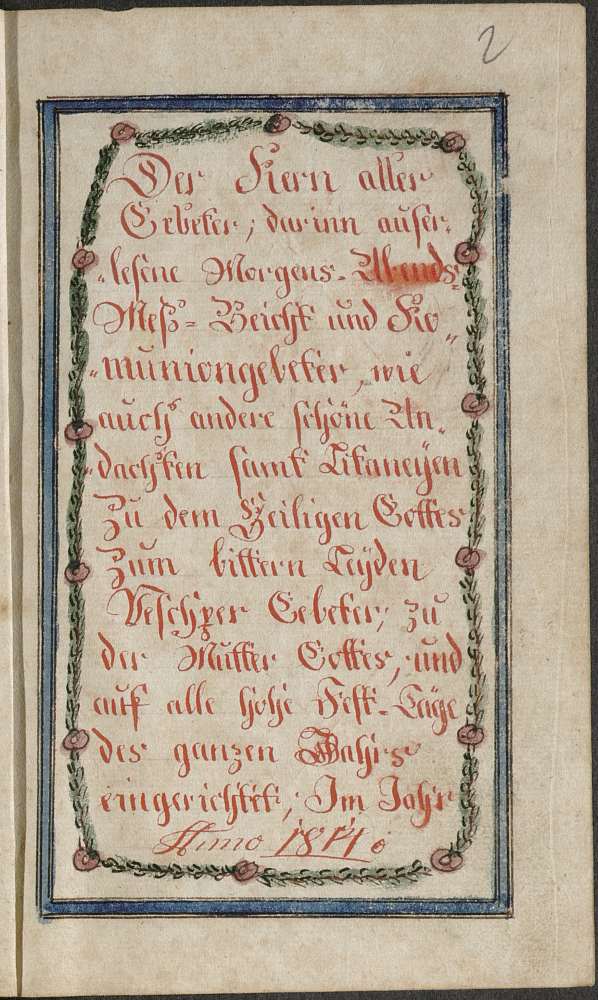 2
Der Kern aller
Gebeter, darinn auser-
-lesene Morgens- Abends-
Meß- Beicht und Ko-
-muniongebeter, wie
auch andere schöne An-
-dachten samt Litaneyen
Zu dem Heiligen Gottes
Zum bittern Leyden
Veschper Gebeter, zu
der Mutter Gottes, und
auf alle hohe Fest-Täge
des ganzen Jahrs
eingerichtet, Im Jahr
Anno